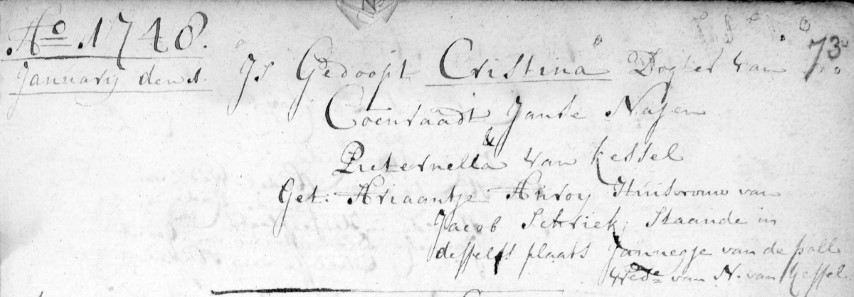 73
Ao. 1748.
January den 1. Is Gedoopt Cristina Dogter van
Coenraadt Janse Nasen
&
Pieternella van Kessel
Get: Ariaantje Anroy Huisvrouw van
Jacob Schriek, Staande in
desselfs plaats Jannegje van de Poll
Wede van N. van Kessel.